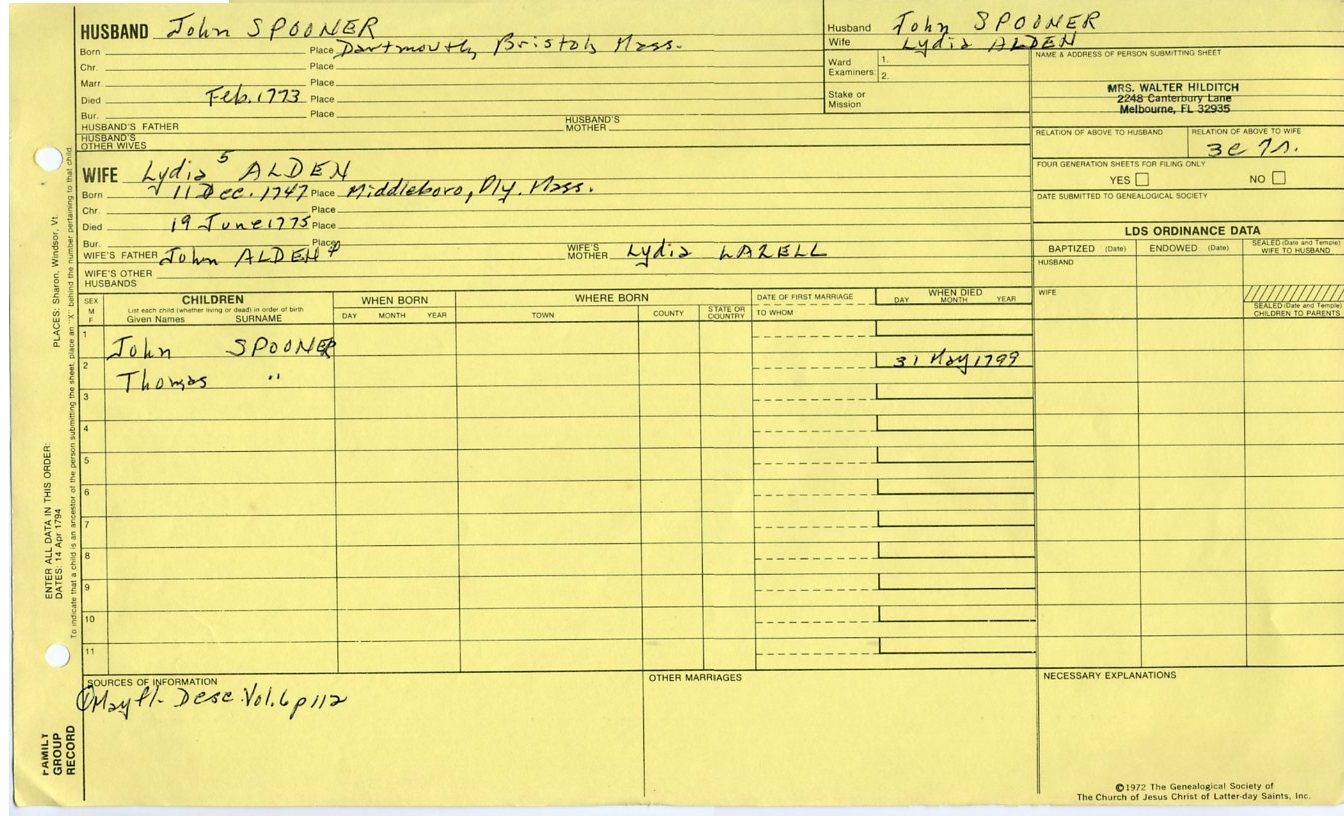 HUSBAND John SPOONER
Born Place Dartmouth, Bristol, Mass.
Chr. Place
Marr. Place
Died Feb. 1773 Place
Bur. Place
HUSBAND'S FATHER HUSBAND'S MOTHER
HUSBAND'S OTHER WIVES
WIFE Lydia 5 ALDEN
Born 11 Dec. 1747 Place Middleboro, Ply. Mass.
Chr. Place
Died 19 June 1775 Place
Bur. Place
WIFE'S FATHER John ALDEN 4 WIFE'S MOTHER Lydia LAZELL
WIFE'S OTHER HUSBANDS
Husband John SPOONER
Wife Lydia ALDEN
Ward Examiners: 1.
2.
Stake or Mission
NAME & ADDRESS OF PERSON SUBMITTING SHEET
MRS. WALTER HILDITCH
2248 Canterbury Lane
Melbourne, FL 32935
RELATION OF ABOVE TO HUSBAND RELATION OF ABOVE TO WIFE
3c 7r.
FOUR GENERATION SHEETS FOR FILING ONLY
YES NO
DATE SUBMITTED TO GENEALOGICAL SOCIETY
LDS ORDINANCE DATA
BAPTIZED (Date) ENDOWED (Date) SEALED (Date and Temple) WIFE TO HUSBAND
HUSBAND
WIFE
SEALED (Date and Temple) CHILDREN TO PARENTS
SEX M F
CHILDREN
List each child (whether living or dead) in order of birth
Given Names SURNAME
WHEN BORN
DAY MONTH YEAR
WHERE BORN
TOWN COUNTY STATE OR COUNTRY
DATE OF FIRST MARRIAGE
TO WHOM
WHEN DIED
DAY MONTH YEAR
1 John SPOONER
2 Thomas " 31 May 1799
3
4
5
6
7
8
9
10
11
SOURCES OF INFORMATION
① Mayfl. Desc. Vol. 6 p 112
OTHER MARRIAGES
NECESSARY EXPLANATIONS
©1972 The Genealogical Society of
The Church of Jesus Christ of Latter-day Saints, Inc.
PLACES: Sharon, Windsor, Vt.
ENTER ALL DATA IN THIS ORDER:
DATES: 14 Apr 1794
To indicate that a child is an ancestor of the person submitting the sheet, place an "X" behind the number pertaining to that child.
FAMILY
GROUP
RECORD